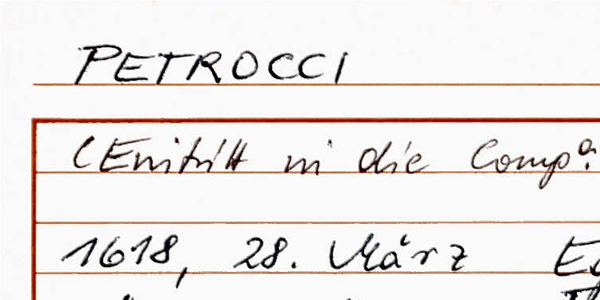 PETROCCI
(Eintritt in die Compª.
1618, 28. März